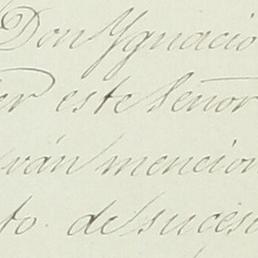 Don Ygnacio
er este Señor
ván mencion
to de suces